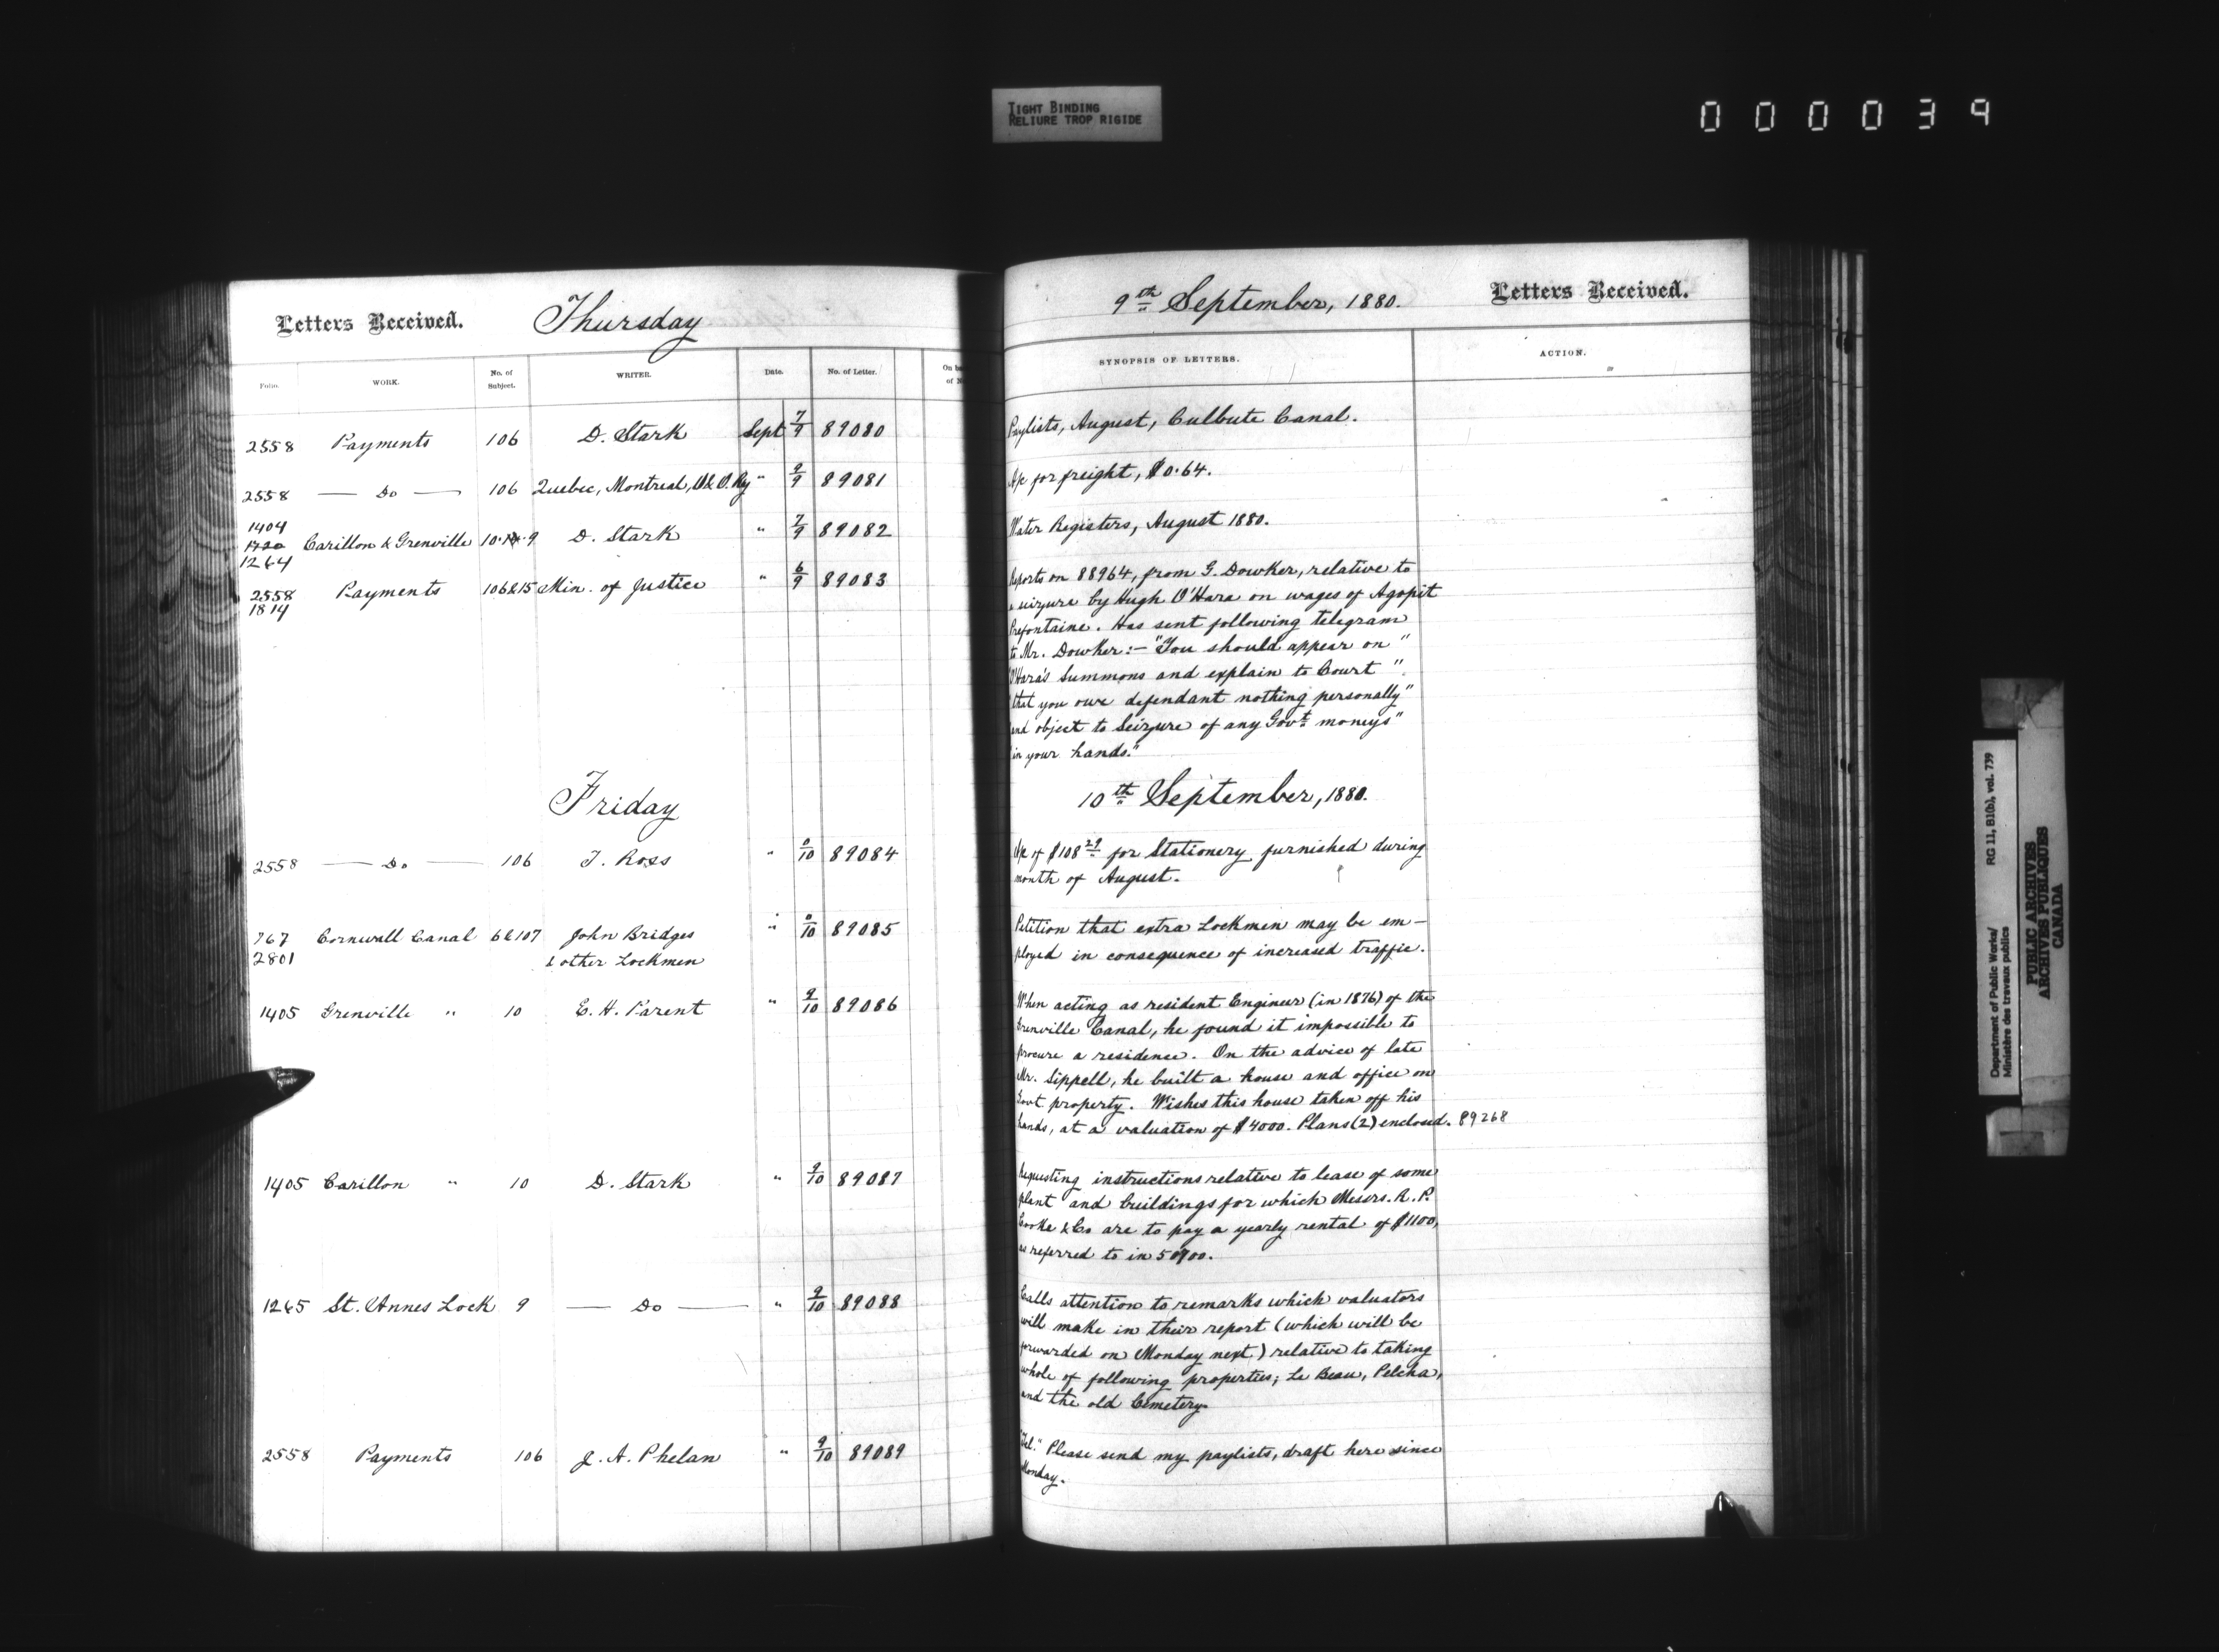 TIGHT BINDING
RELIURE TROP RIGIDE
000039
Letters Received. Thursday
9th September, 1880. Letters Received.
Folio. WORK. No. of Subject. WRITER. Date. No. of Letter. On ba
of N
SYNOPSIS OF LETTERS. ACTION.
2558 Payments 106 D. Stark Sept 7/9 89080
Paylists, August, Culbute Canal.
2558 — Do — 106 Quebec, Montreal, O & O. Ry " 9/9 89081
A/c for freight, $0.64.
1404
1720
1264
Carillon & Grenville 10. 14. 9 D. Stark " 7/9 89082
Water Registers, August 1880.
2558
1814
Payments 106&15 Min. of Justice " 6/9 89083
Reports on 88964, from G. Dowker, relative to
a seizure by Hugh O'Hara on wages of Agapit
Prefontaine. Has sent following telegram
to Mr. Dowker:— "You should appear on "
O'Hara's Summons and explain to Court "
that you owe defendant nothing personally"
and object to Seizure of any Govt moneys"
in your hands."
Friday
10th September, 1880.
2558 — Do — 106 T. Ross " 9/10 89084
A/c of $108 29 for Stationery furnished during
month of August.
767
2801
Cornwall Canal 6&107 John Bridges
& other Lockmen
" 8/10 89085
Petition that extra Lockmen may be em—
ployed in consequence of increased traffic.
1405 Grenville " 10 E. H. Parent " 9/10 89086
When acting as resident Engineer (in 1876) of the
Grenville Canal, he found it impossible to
procure a residence. On the advice of late
Mr. Sippell, he built a house and office on
Govt property. Wishes this house taken off his
hands, at a valuation of $4000. Plans (2) enclosed. 89268
1405 Carillon " 10 D. Stark " 9/10 89087
Requesting instructions relative to lease of some
plant and buildings for which Messrs. R. P.
Cooke & Co are to pay a yearly rental of $1100,
as referred to in 50900.
1265 St. Annes Lock 9 — Do — " 9/10 89088
Calls attention to remarks which valuators
will make in their report (which will be
forwarded on Monday next) relative to taking
whole of following properties; Le Beau, Pelcha,
and the old Cemetery.
2558 Payments 106 J. A. Phelan " 9/10 89089
"Tel." Please send my paylists, draft here since
Monday.
Department of Public Works/
Ministère des travaux publics
RG 11, B1(b), vol. 739
PUBLIC ARCHIVES
ARCHIVES PUBLIQUES
CANADA